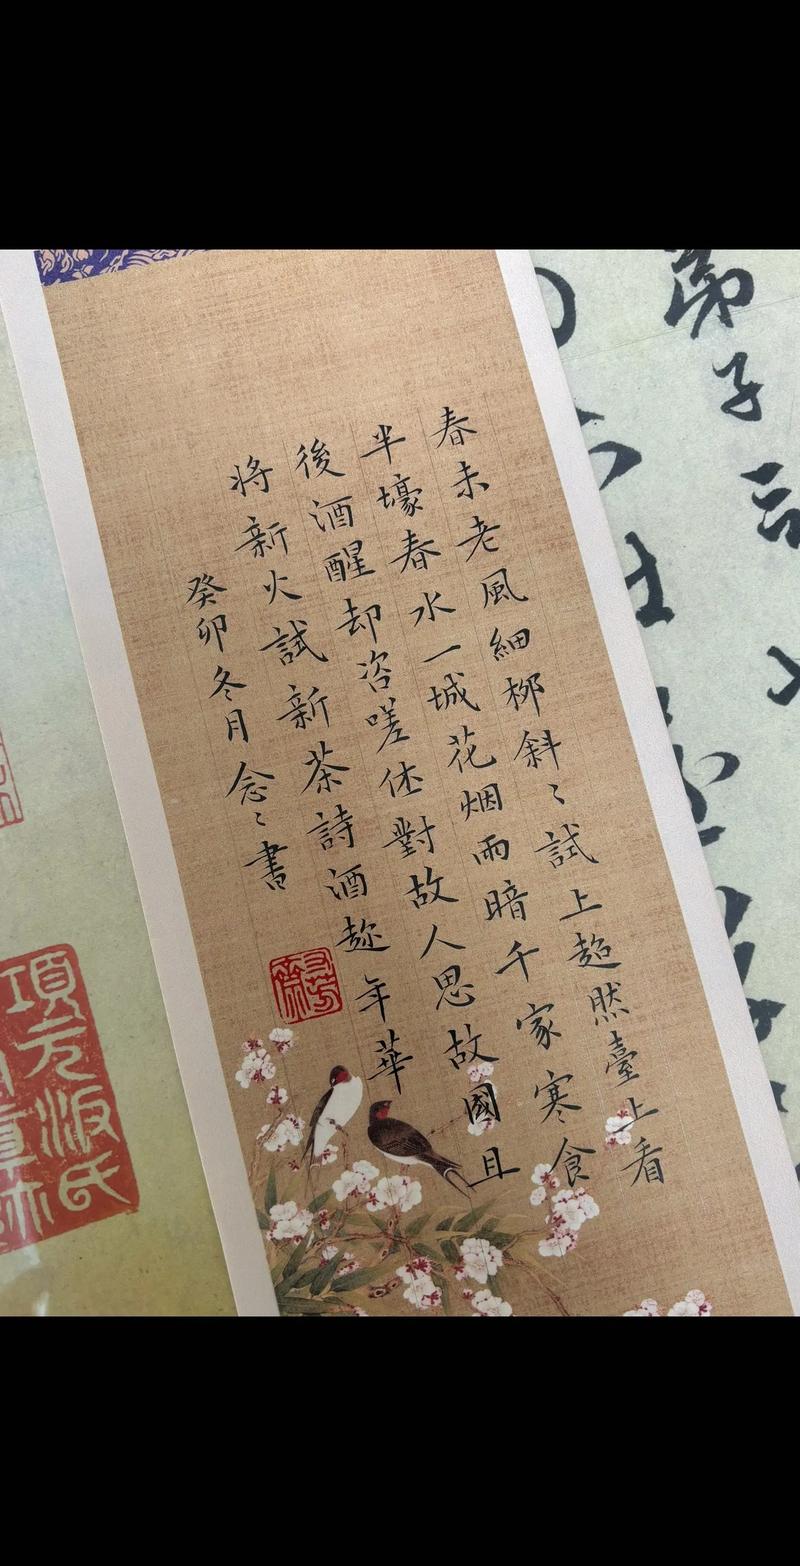 春未老風細柳斜〻試上超然臺上看
半壕春水一城花烟雨暗千家寒食
後酒醒却咨嗟休對故人思故國且
將新火試新茶詩酒趂年華
癸卯冬月念〻書
弟子
項元汴氏